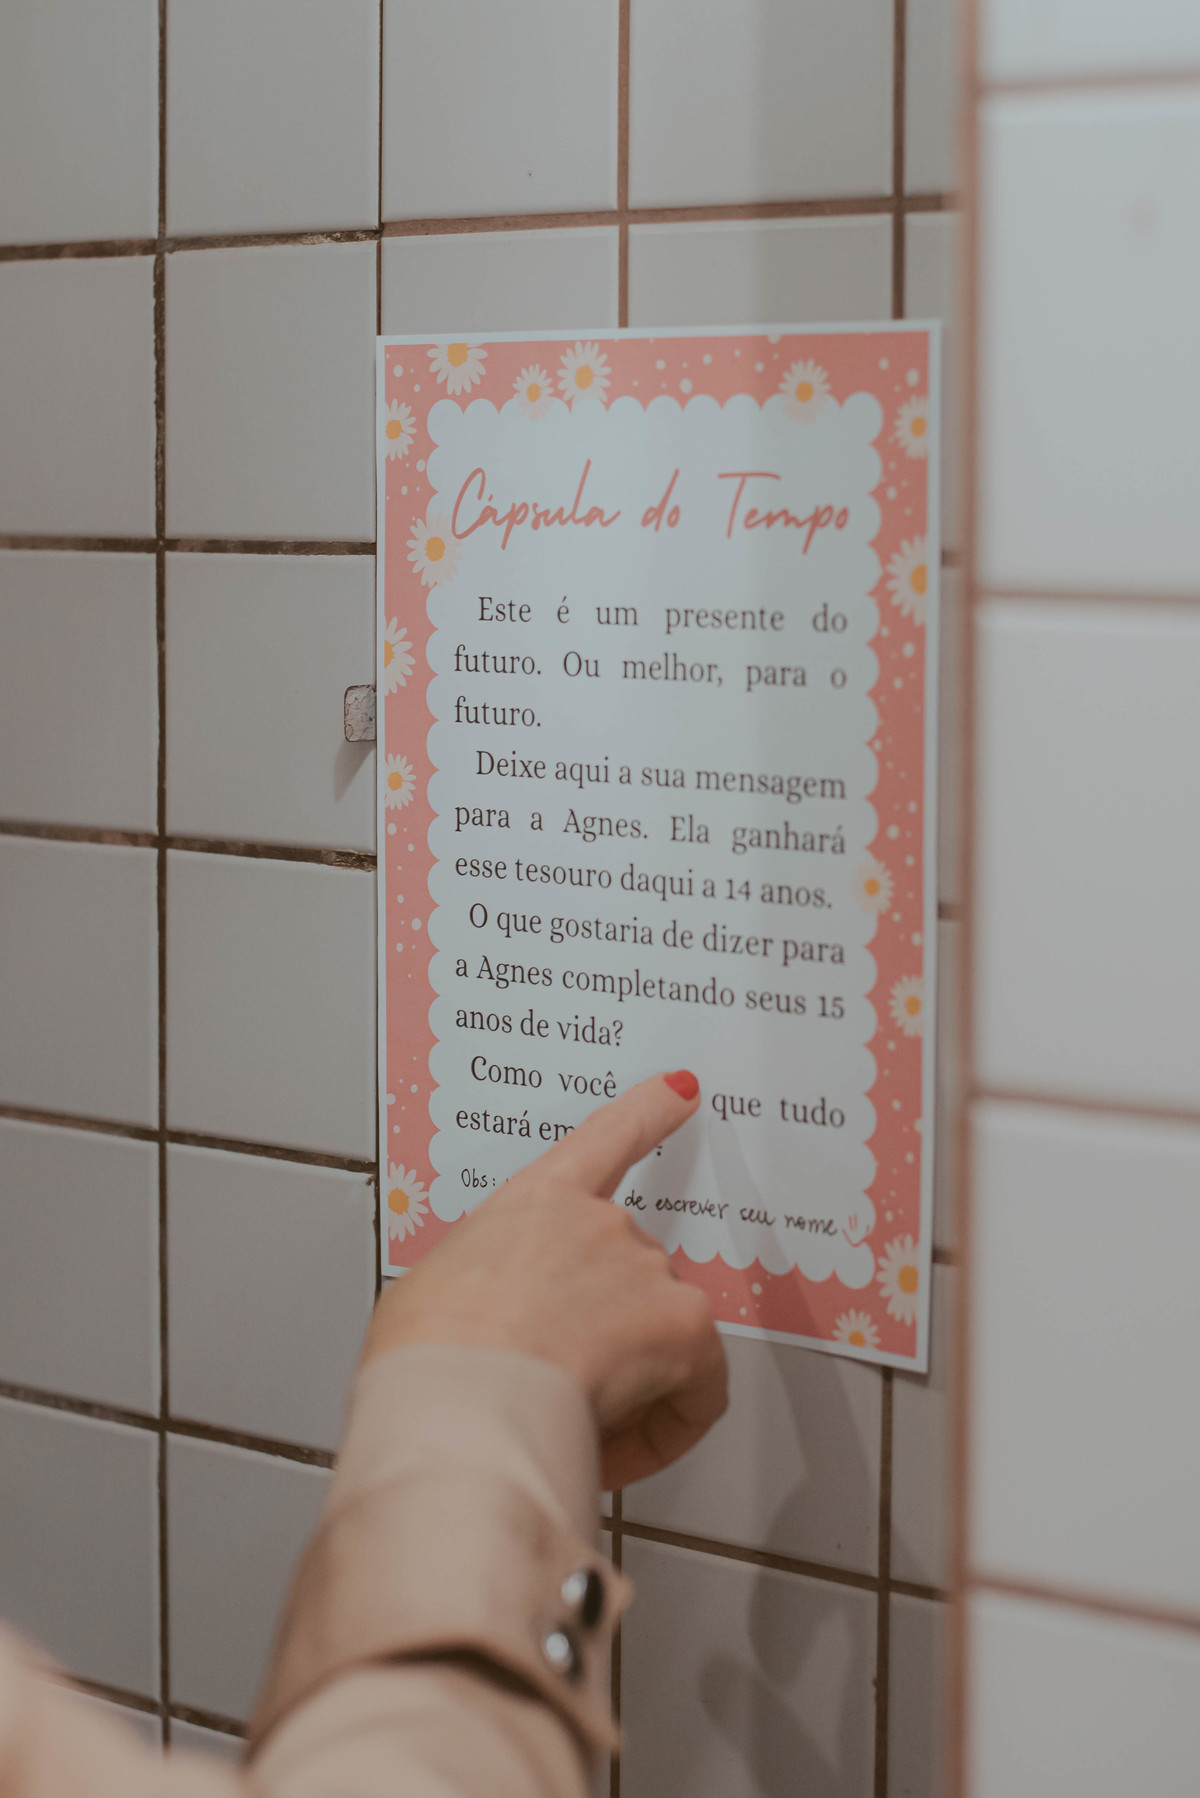 Cápsula do Tempo
Este é um presente do
futuro. Ou melhor, para o
futuro.
Deixe aqui a sua mensagem
para a Agnes. Ela ganhará
esse tesouro daqui a 14 anos.
O que gostaria de dizer para
a Agnes completando seus 15
anos de vida?
Como você que tudo
estará em ?
Obs: de escrever seu nome